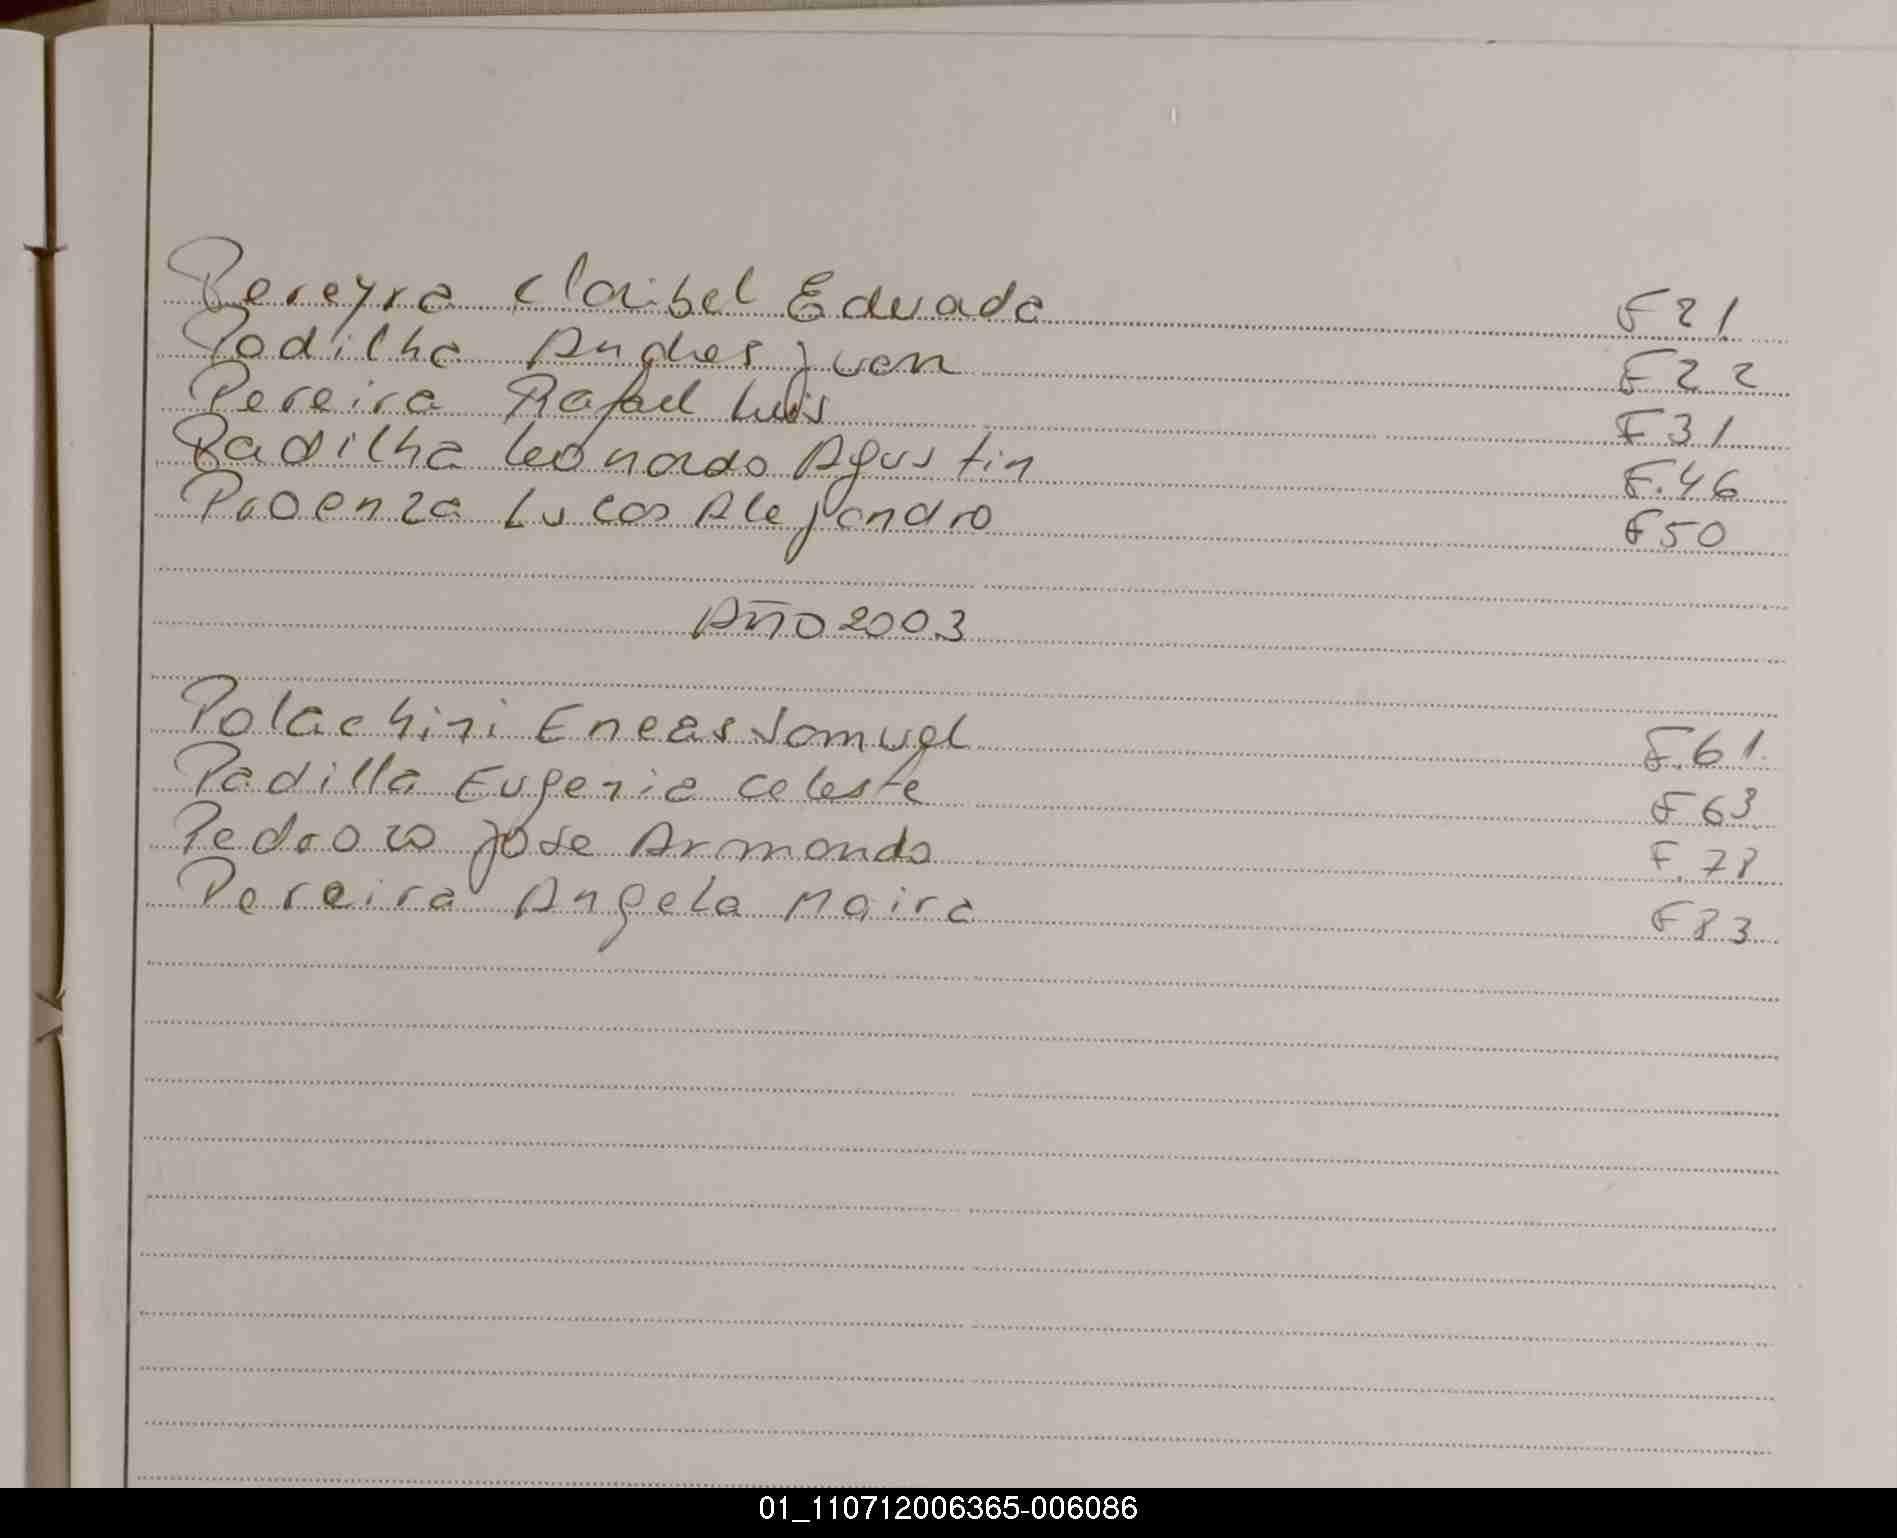 Pereyra Claribel Eduada F21.
Padilha Andres Juan F22
Pereira Rafael Luis F31
Padilha Leonardo Agustin F.46
Proenza Lucas Alejandro F50
Año 2003
Polachini Eneas Samuel F.61.
Padilla Eugenia Celeste F63
Pedrozo Jose Armando F.78
Pereira Angela Maira F83
01_110712006365-006086